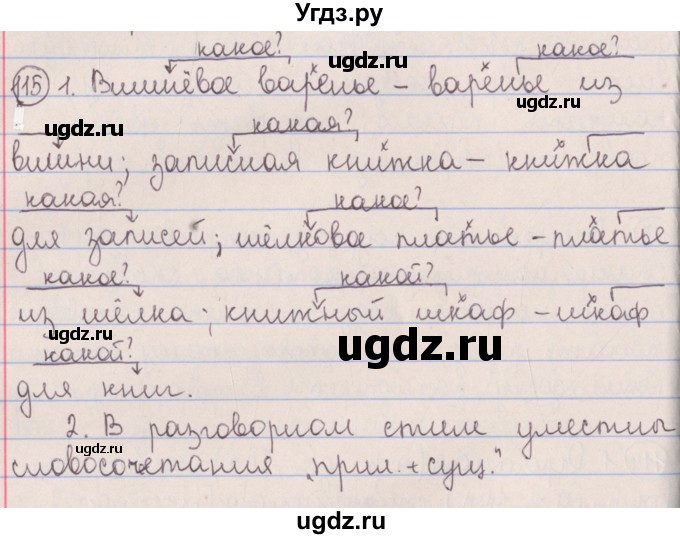 Угдз.ру
какое? какое?
115 1. Вишнёвое варенье – варенье из
угdz.ru ugdz.ru
какая?
вишни; записная книжка – книжка
какая? какое?
для записей; шёлковое платье – платье
какое? какой?
из шёлка; книжный шкаф – шкаф
ugdz.ru ugdz.ru
какой?
для книг.
2. В разговорном стиле уместны
словосочетания „прил. + сущ."
ugdz.ru ugdz.ru
ugdz.ru